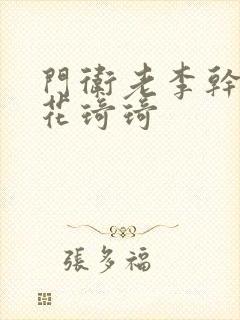 門衛老李幹
花琦琦
張多福